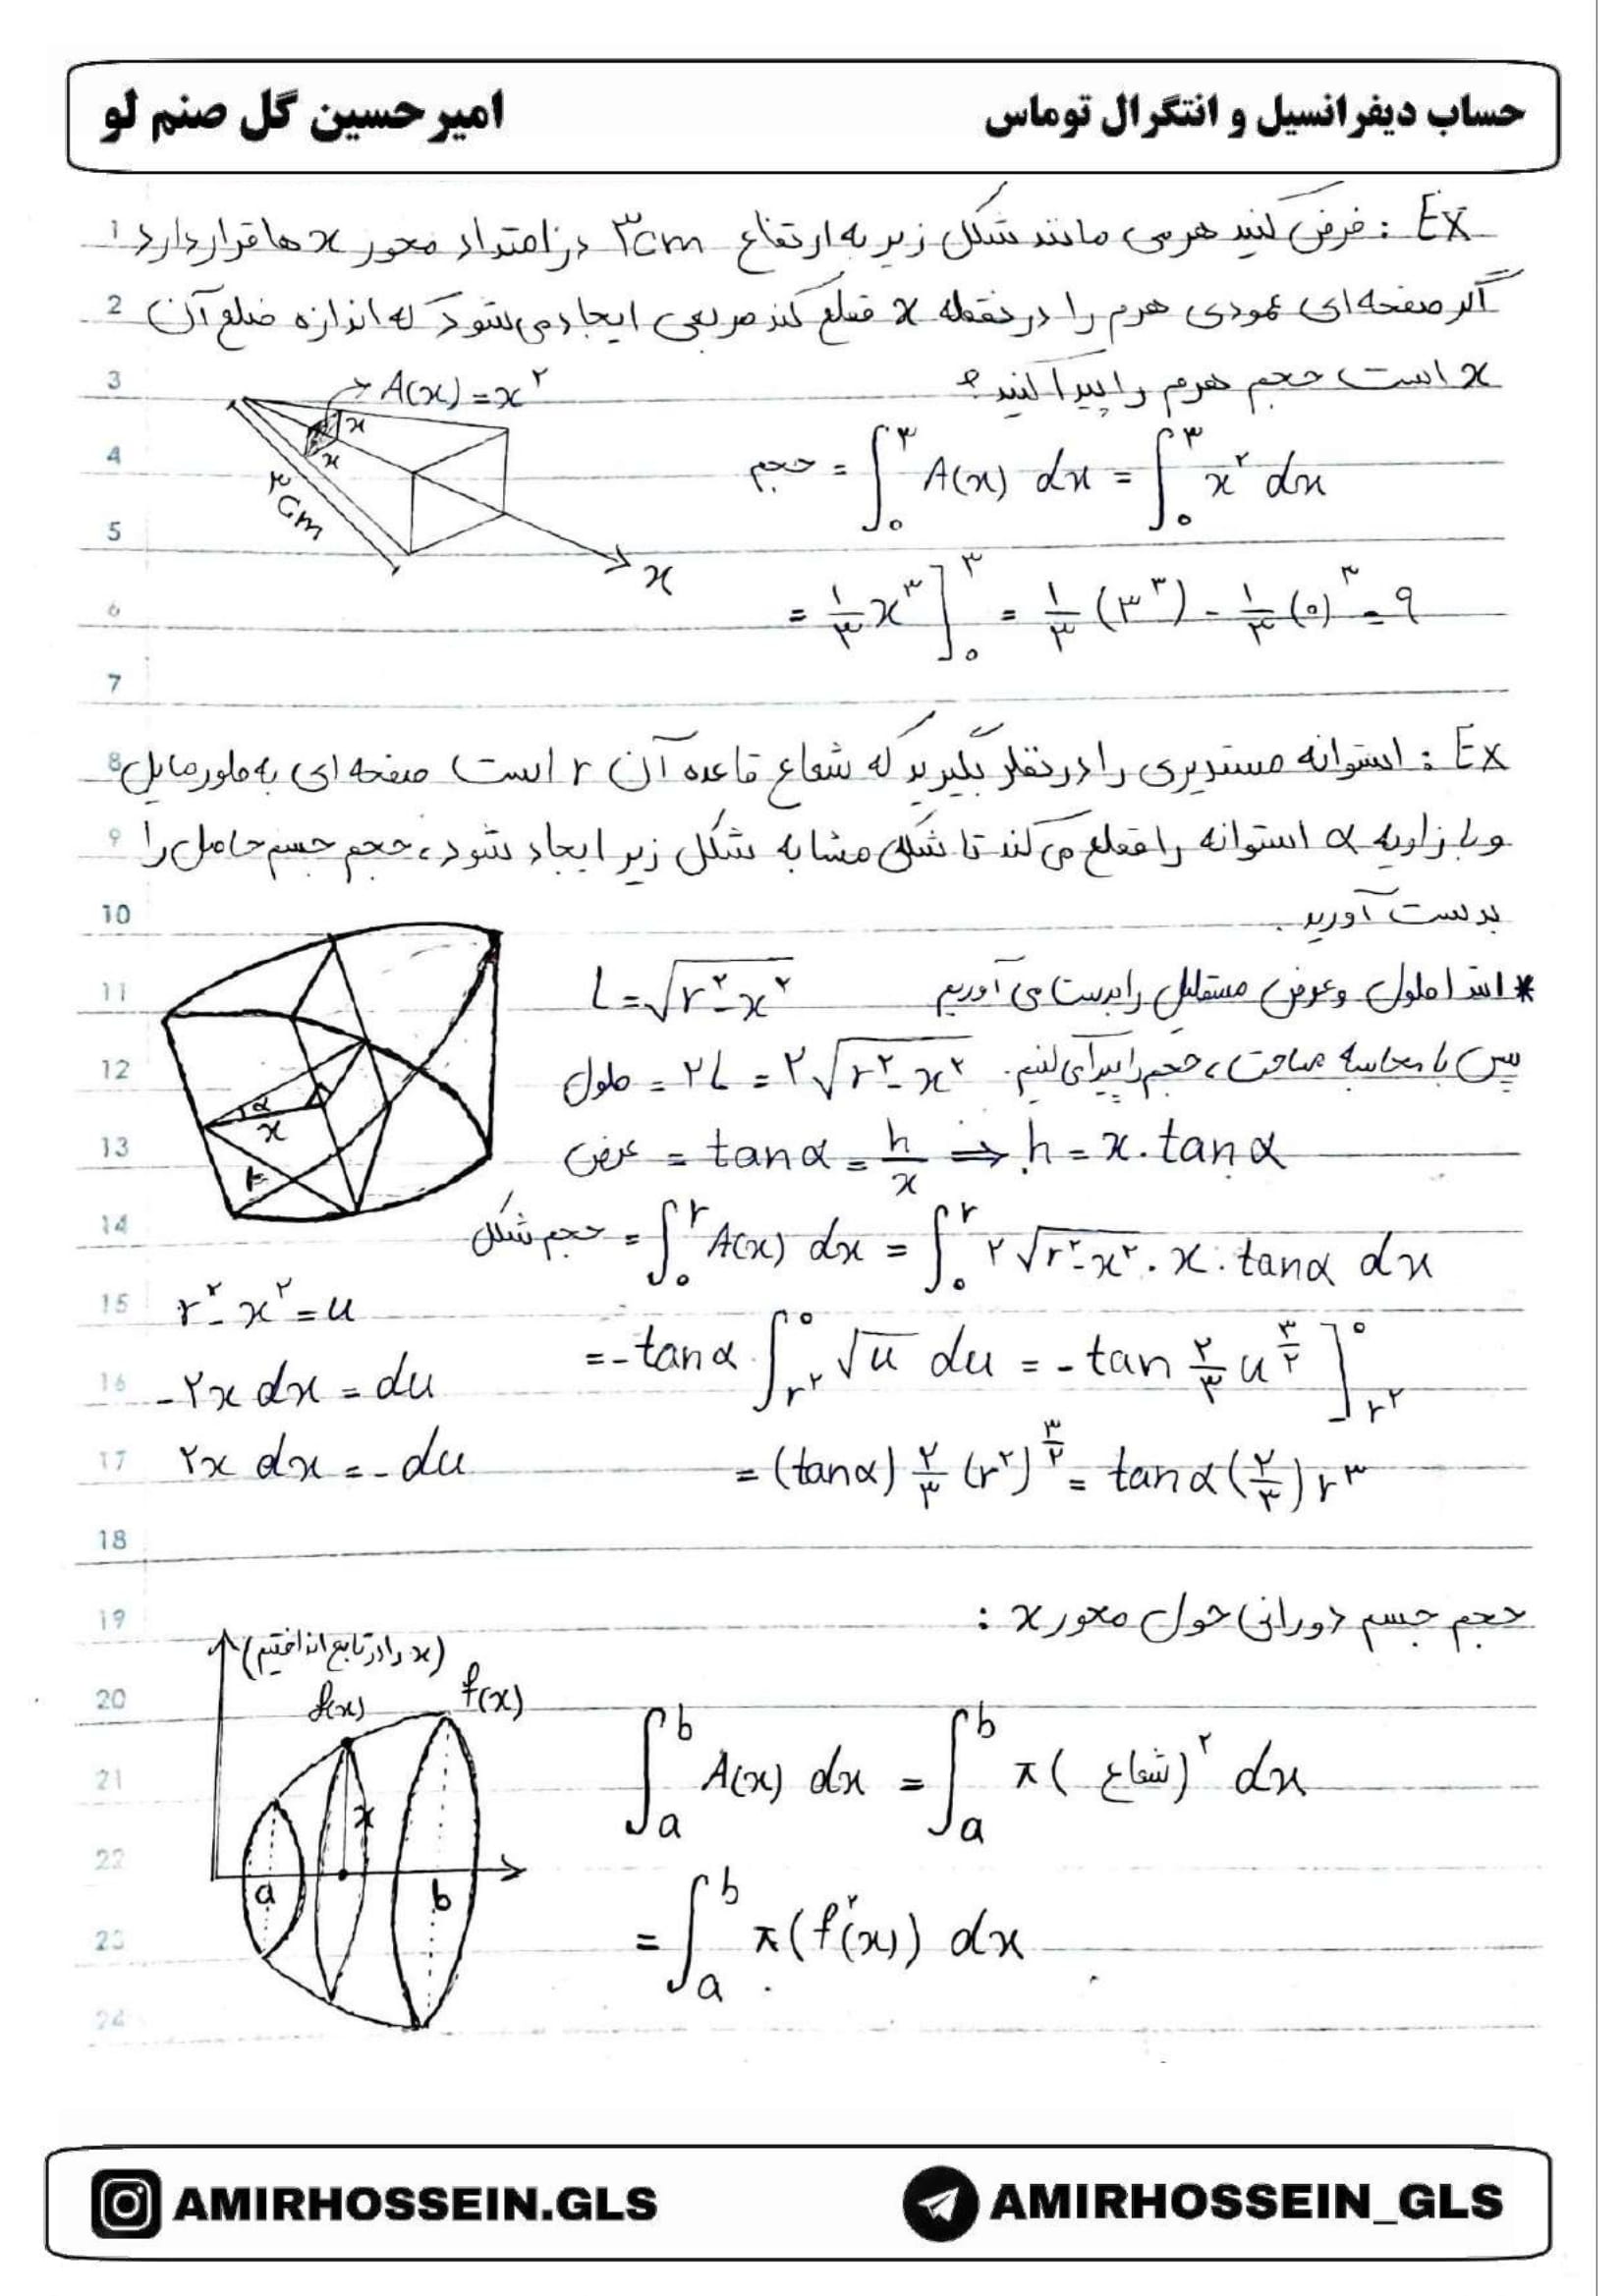 حساب دیفرانسیل و انتگرال توماس
امیرحسین گل صنم لو
Ex : فرض کنید هرمی مانند شکل زیر به ارتفاع ۳cm در امتداد محور x ها قرار دارد
اگر صفحه ای عمودی هرم را در نقطه x قطع کند مربعی ایجاد می شود که اندازه ضلع آن
x است حجم هرم را پیدا کنید؟
A(x) = x²
x
x
۳cm
x
حجم = ∫₀^۳ A(x) dx = ∫₀^۳ x² dx
= ۱/۳ x^۳ ]₀^۳ = ۱/۳ (۳^۳) - ۱/۳ (۰)^۳ = ۹
Ex : استوانه مستدیری را در نظر بگیرید که شعاع قاعده آن r است صفحه ای به طور مایل
و با زاویه α استوانه را قطع می کند تا شکل مشابه شکل زیر ایجاد شود، حجم جسم حاصل را
بدست آورید.
* ابتدا طول و عرض مستطیل را بدست می آوریم
L = √(r² - x²)
پس با محاسبه مساحت، حجم را پیدا می کنیم.
طول = ۲L = ۲√(r² - x²)
عرض = tanα = h/x ⇒ h = x . tanα
α
x
r
حجم شکل = ∫₀^r A(x) dx = ∫₀^r ۲√(r² - x²) . x . tanα dx
r² - x² = u
= - tanα . ∫_{r²}^0 √u du = - tan ۲/۳ u^{۳/۲} ]_{r²}^0
-۲x dx = du
۲x dx = - du
= (tanα) ۲/۳ (r²)^{۳/۲} = tanα (۲/۳) r^۳
حجم جسم دورانی حول محور x :
(x را در تابع انداختیم)
f(x)
f(x)
x
a
b
∫_a^b A(x) dx = ∫_a^b π( شعاع )² dx
= ∫_a^b π(f²(x)) dx
AMIRHOSSEIN.GLS
AMIRHOSSEIN_GLS
1
2
3
4
5
6
7
8
9
10
11
12
13
14
15
16
17
18
19
20
21
22
23
24